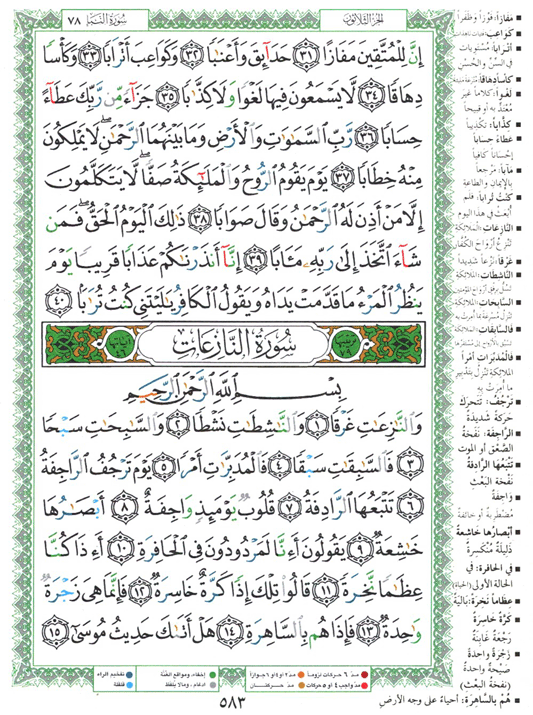 سُورَةُ النَّبَإِ ٧٨
الجُزءُ الثَّلاثُونَ
إِنَّ لِلْمُتَّقِينَ مَفَازًا ٣١ حَدَآئِقَ وَأَعْنَٰبًا ٣٢ وَكَوَاعِبَ أَتْرَابًا ٣٣ وَكَأْسًا
دِهَاقًا ٣٤ لَّا يَسْمَعُونَ فِيهَا لَغْوًا وَلَا كِذَّٰبًا ٣٥ جَزَآءً مِّن رَّبِّكَ عَطَآءً
حِسَابًا ٣٦ رَّبِّ السَّمَٰوَٰتِ وَالْأَرْضِ وَمَا بَيْنَهُمَا الرَّحْمَٰنِ ۖ لَا يَمْلِكُونَ
مِنْهُ خِطَابًا ٣٧ يَوْمَ يَقُومُ الرُّوحُ وَالْمَلَٰٓئِكَةُ صَفًّا ۖ لَّا يَتَكَلَّمُونَ
إِلَّا مَنْ أَذِنَ لَهُ الرَّحْمَٰنُ وَقَالَ صَوَابًا ٣٨ ذَٰلِكَ الْيَوْمُ الْحَقُّ ۖ فَمَن
شَآءَ اتَّخَذَ إِلَىٰ رَبِّهِۦ مَـَٔابًا ٣٩ إِنَّآ أَنذَرْنَٰكُمْ عَذَابًا قَرِيبًا يَوْمَ
يَنظُرُ الْمَرْءُ مَا قَدَّمَتْ يَدَاهُ وَيَقُولُ الْكَافِرُ يَٰلَيْتَنِي كُنتُ تُرَٰبًا ٤٠
ترتيبها ٧٩
سُورَةُ النَّازِعَاتِ
آياتها ٤٦
بِسْمِ اللَّهِ الرَّحْمَٰنِ الرَّحِيمِ
وَالنَّٰزِعَٰتِ غَرْقًا ١ وَالنَّٰشِطَٰتِ نَشْطًا ٢ وَالسَّٰبِحَٰتِ سَبْحًا
٣ فَالسَّٰبِقَٰتِ سَبْقًا ٤ فَالْمُدَبِّرَٰتِ أَمْرًا ٥ يَوْمَ تَرْجُفُ الرَّاجِفَةُ
٦ تَتْبَعُهَا الرَّادِفَةُ ٧ قُلُوبٌ يَوْمَئِذٍ وَاجِفَةٌ ٨ أَبْصَٰرُهَا
خَٰشِعَةٌ ٩ يَقُولُونَ أَءِنَّا لَمَرْدُودُونَ فِي الْحَافِرَةِ ١٠ أَءِذَا كُنَّا
عِظَٰمًا نَّخِرَةً ١١ قَالُوا تِلْكَ إِذًا كَرَّةٌ خَاسِرَةٌ ١٢ فَإِنَّمَا هِيَ زَجْرَةٌ
وَٰحِدَةٌ ١٣ فَإِذَا هُم بِالسَّاهِرَةِ ١٤ هَلْ أَتَىٰكَ حَدِيثُ مُوسَىٰٓ ١٥
مَفَازًا: فَوْزًا وَظَفَرًا
كَوَاعِبَ:
أَتْرَابًا: مُسْتَوِيَاتٍ
في السِّنِّ والحُسْنِ
كَأْسًا دِهَاقًا:
لَغْوًا: كلاماً غيرَ
مُعْتَدٍّ به أو قبيحاً
كِذَّابًا: تكذيباً
عَطَاءً حِسَابًا
إحساناً كافياً
مَآبًا: مَرْجِعاً
بالإيمانِ والطاعةِ
كُنْتُ تُرَابًا: فلم
أُبْعَثْ في هذا اليوم
النَّازِعَاتِ: الملائكة
تَنْزِعُ أرواحَ الكُفَّارِ
غَرْقًا: نَزْعاً شديداً
النَّاشِطَاتِ: الملائكة
السَّابِحَاتِ: الملائكة
فَالسَّابِقَاتِ: الملائكة
فَالْمُدَبِّرَاتِ أَمْرًا
الملائكة تَنْزِلُ بتدبيرِ
ما أُمِرَتْ به
تَرْجُفُ: تَتَحَرَّكُ
حَرَكَةً شديدةً
الرَّاجِفَةُ: نَفْخَةُ
الصَّعْقِ أو الموتِ
تَتْبَعُهَا الرَّادِفَةُ
نَفْخَةُ البَعْثِ
وَاجِفَةٌ
مُضْطَرِبَةٌ أو خائفةٌ
أَبْصَارُهَا خَاشِعَةٌ
ذَلِيلَةٌ مُنْكَسِرَةٌ
فِي الْحَافِرَةِ:
الحالةِ الأولى (الحياة)
عِظَامًا نَخِرَةً: بَالِيَةً
كَرَّةٌ خَاسِرَةٌ
رَجْعَةٌ غَابِنَةٌ
زَجْرَةٌ وَاحِدَةٌ
صَيْحَةٌ واحدةٌ
(نَفْخَةُ البَعْثِ)
هُمْ بِالسَّاهِرَةِ: أحياءٌ على وجهِ الأرضِ
مدّ ٦ حركات لزوماً
مدّ ٢ أو ٤ أو ٦ جوازاً
إخفاء، ومواقع الغُنَّة
تفخيم الراء
مدّ واجب ٤ أو ٥ حركات
مدّ حركتان
إدغام، وما لا يُلفظ
قلقلة
٥٨٣